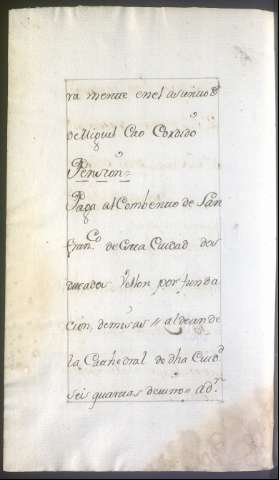 ra mente en el asiento de
de Miguel Cao Cordido
Pension=
Paga al Combento de San
Fran.co de esta Ciudad dos
ducados Vellon por funda
cion, de misas // al dean de
la Cathedral de dha Ciud.d
seis quartas de vino= a d.n